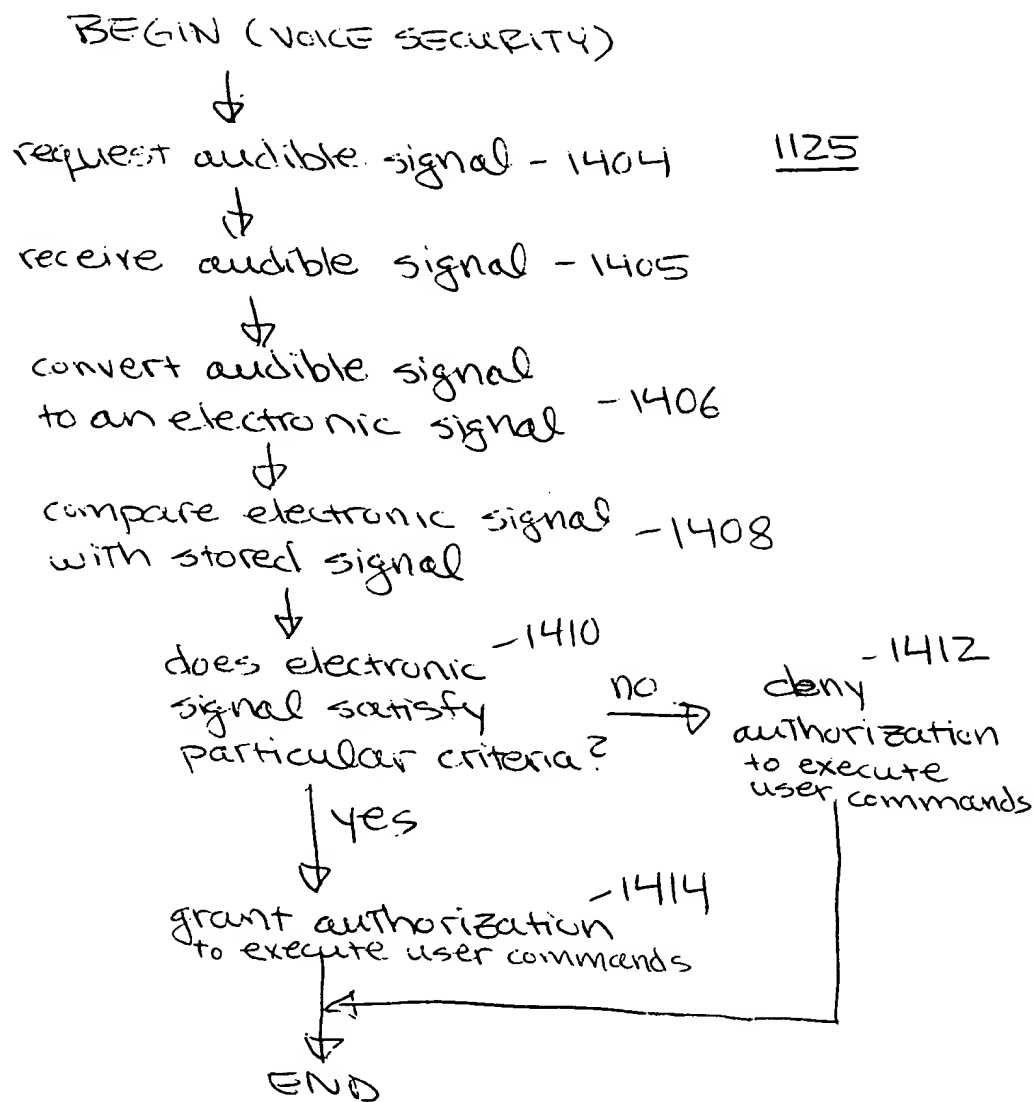 BEGIN (VOICE SECURITY)
request audible signal - 1404
1125
receive audible signal - 1405
convert audible signal
to an electronic signal - 1406
compare electronic signal
with stored signal - 1408
does electronic - 1410
signal satisfy
particular criteria?
no
deny - 1412
authorization
to execute
user commands
yes
grant authorization - 1414
to execute user commands
END